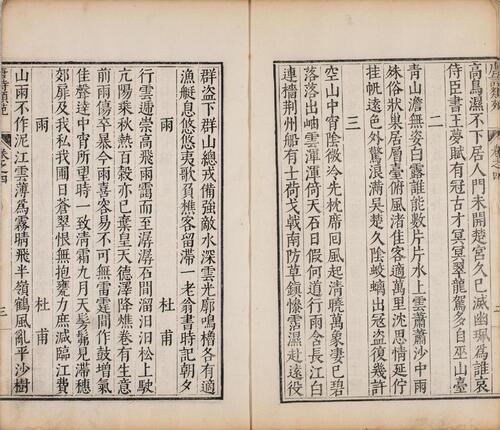 唐詩類苑 卷之四 二
高鳥濕不下居人門未開楚宮久已滅幽珮為誰哀
侍臣書王夢賦有冠古才冥冥翠龍駕多自巫山臺
二
青山澹無姿白露誰能數片片水上雲蕭蕭沙中雨
殊俗狀巢居層臺俯風渚佳客適萬里沈思情延佇
挂帆遠色外驚浪滿吳楚久陰蛟螭出寇盜復幾許
三
空山中宵陰微冷先枕席回風起清曉萬象凄已碧
落落出岫雲渾渾倚天石日假何道行雨含長江白
連檣荊州船有士荷戈戟南防草鎮慘霑濕赴遠役
群盜下群山總戎備強敵水深雲光廓鳴櫓各有適
漁艇息悠悠夷歌負樵客留滯一老翁書時記朝夕
雨 杜甫
行雲遞崇高飛雨靄而至潺潺石間溜汩汩松上駛
亢陽乘秋熱百穀亦已棄皇天德澤降燋卷有生意
前雨傷卒暴今雨喜容易不可無雷霆間作鼓增氣
佳聲達中宵所望時一致清霜九月天髣髴見滯穗
郊扉及我私我圃日蒼翠恨無抱甕力庶減臨江費
雨 杜甫
山雨不作泥江雲薄為霧晴飛半嶺鶴風亂平沙樹
唐詩類苑 卷之四 三